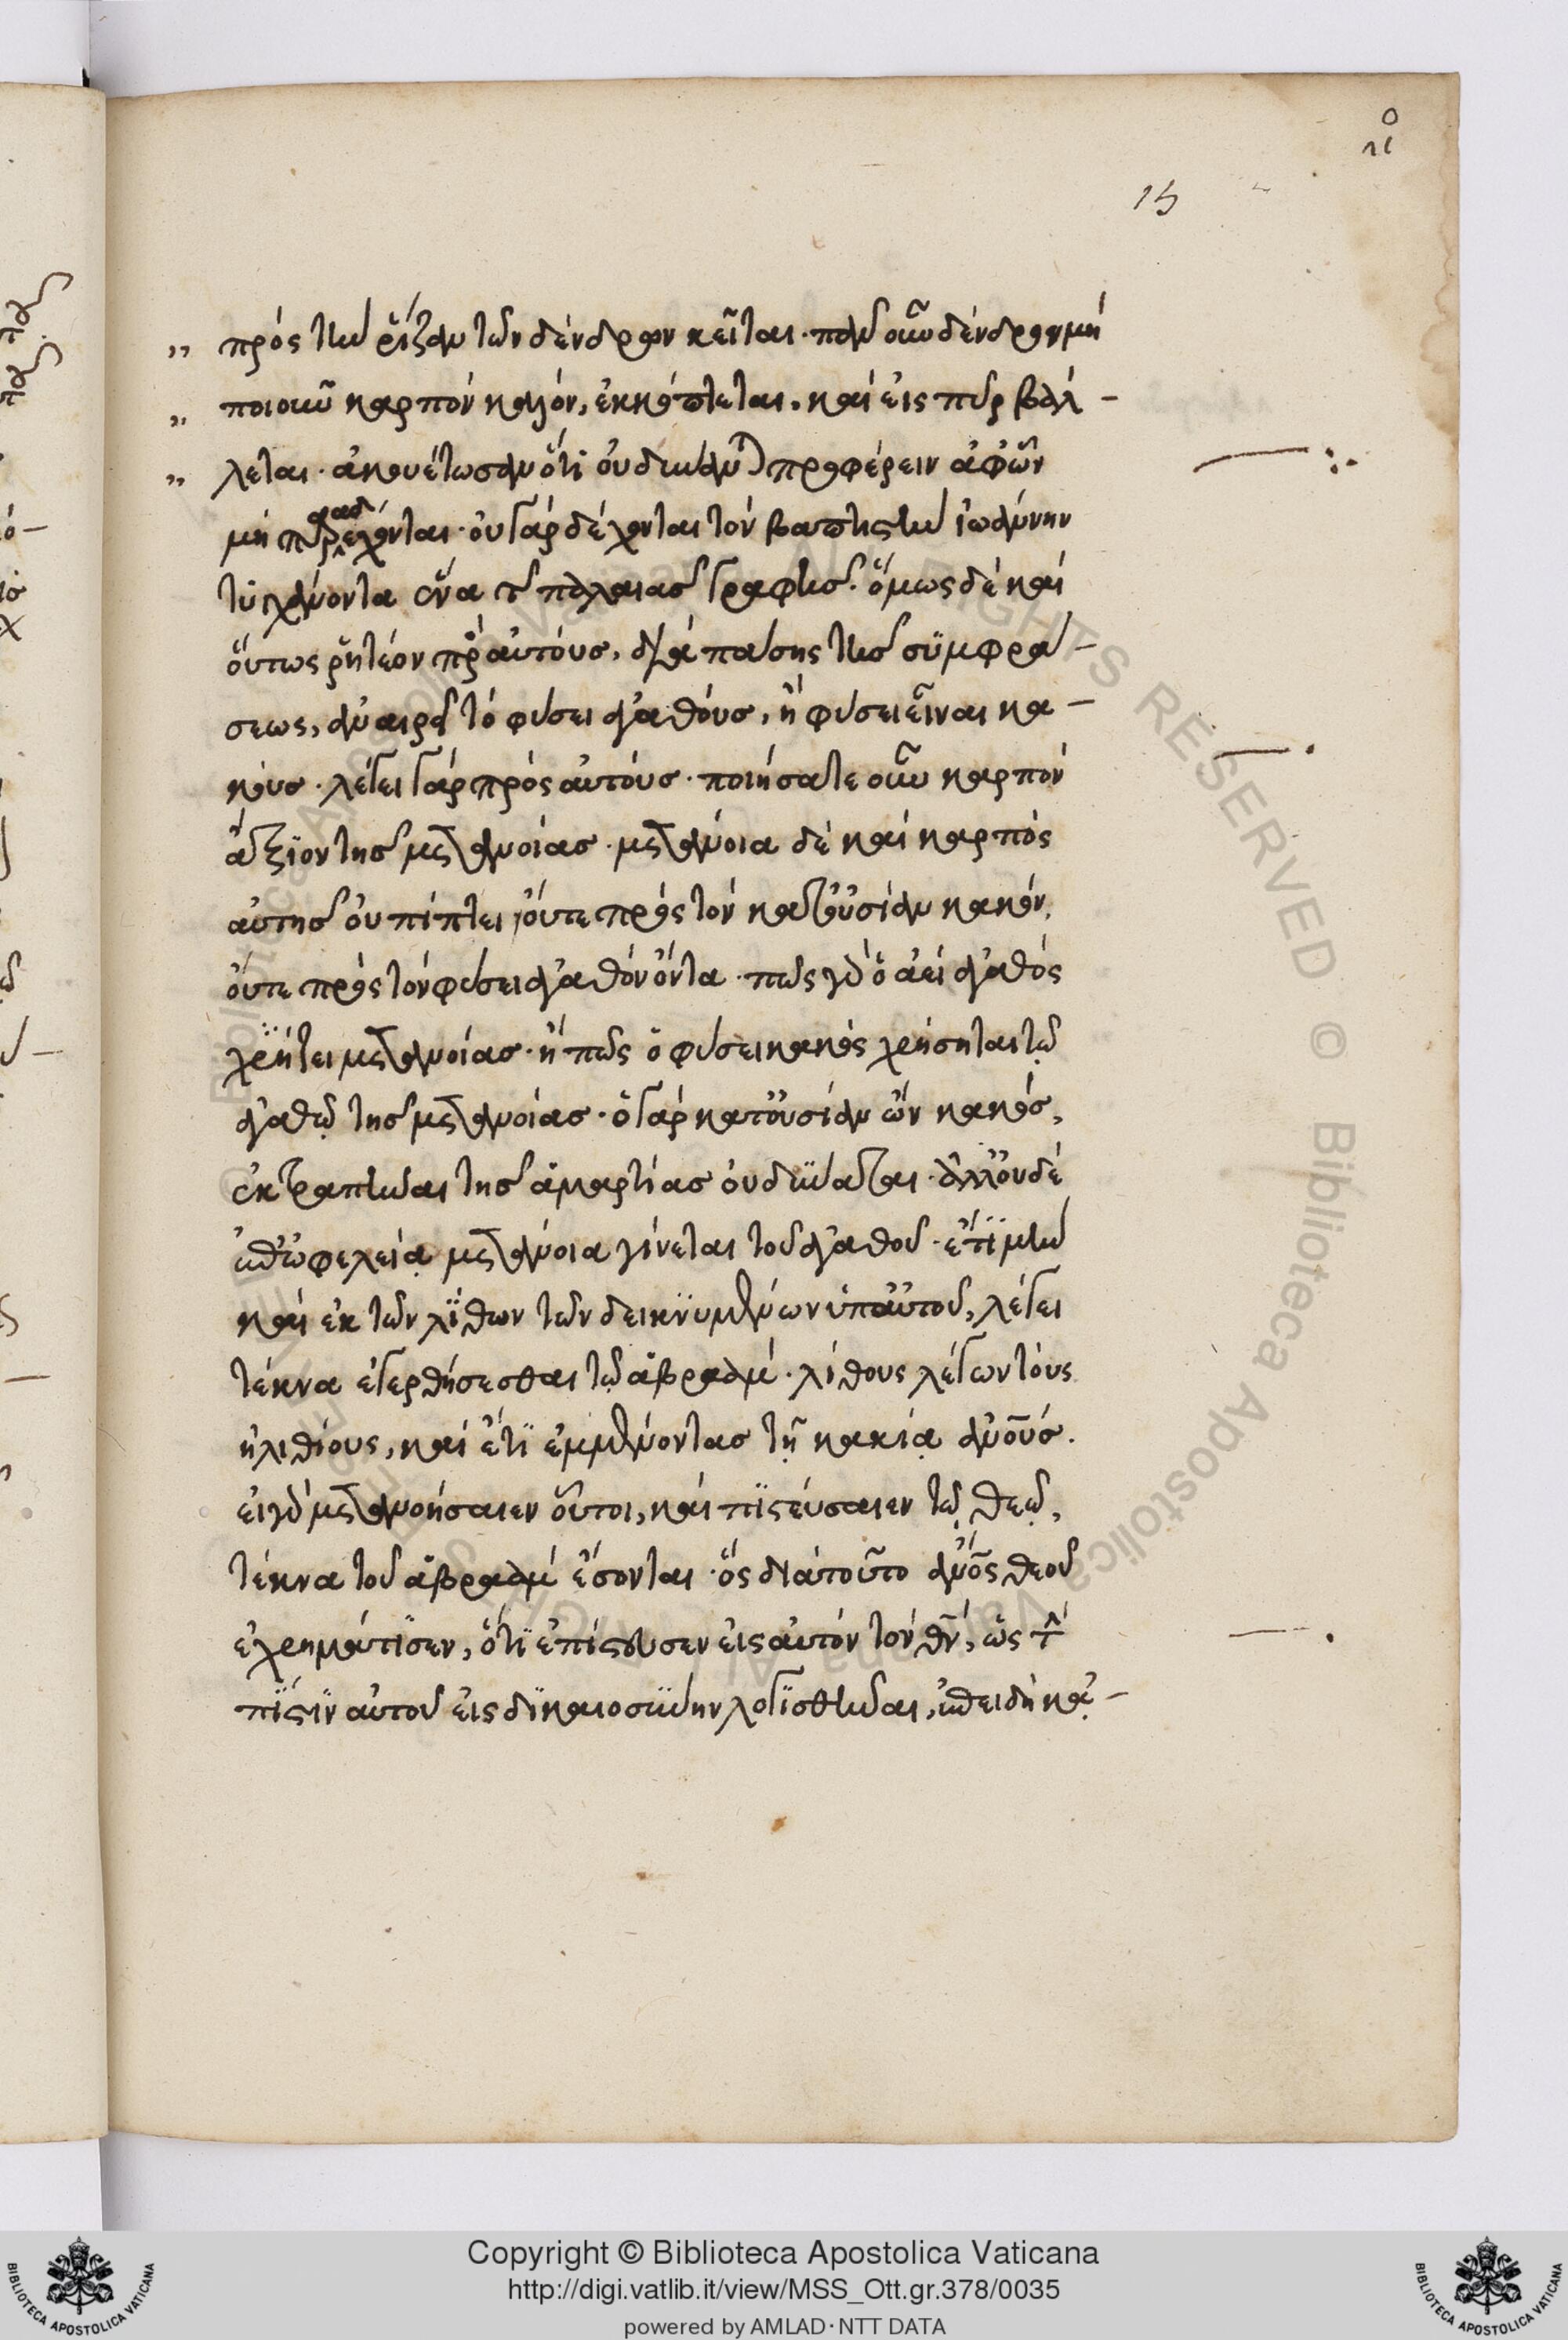 15
πρὸς τὴν ῥίζαν τῶν δένδρων κεῖται· πᾶν οὖν δένδρον μὴ
ποιοῦν καρπὸν καλόν, ἐκκόπτεται, καὶ εἰς πῦρ βάλ-
λεται· ἀκουέτωσαν ὅτι οὐ δύναν() προφέρειν ἀφ' ὧν
μὴ δέχονται· οὐ γὰρ δέχονται τὸν βαπτιστὴν ἰωάννην
τυγχάνοντα ἕνα τ παλαιᾶς γραφῆς· ὅμως δὲ καὶ
οὕτως ῥητέον πρ αὐτούς, διὰ πάσης τῆς συμφρά-
σεως, ἀναιρεῖ τὸ φύσει ἀγαθούς, ἢ φύσει εἶναι κα-
κούς· λέγει γὰρ πρὸς αὐτούς· ποιήσατε οὖν καρπὸν
ἄξϊον τῆς μετανοίας· μετάνοια δὲ καὶ καρπὸς
αὐτῆς οὐ πίπτει οὔτε πρὸς τὸν κατ' οὐσίαν κακόν,
οὔτε πρὸς τὸν φύσει ἀγαθὸν ὄντα· πῶς γὰρ ὁ ἀεὶ ἀγαθὸς
χρῄζει μετανοίας· ἢ πῶς ὁ φύσει κακὸς χρήσηται τῷ
ἀγαθῷ τῆς μετανοίας· ὁ γὰρ κατ' οὐσίαν ὢν κακός,
ἐκτραπῆναι τῆς ἁμαρτίας οὐ δύναται· ἀλλ' οὐδὲ
ἐπ' ὠφελείᾳ μετάνοια γίνεται τοῦ ἀγαθοῦ· ἔτϊ μὴν
καὶ ἐκ τῶν λίθων τῶν δεικνυμένων ὑπ' αὐτοῦ, λέγει
τέκνα ἐγερθήσεσθαι τῷ ἀβραάμ· λίθους λέγων τοὺς
ἠλιθίους, καὶ ἔτϊ ἐμμένοντας τῇ κακίᾳ ἀνους.
εἰ γὰρ μετανοήσαιεν οὗτοι, καὶ πϊστεύσαιεν τῷ θεῷ,
τέκνα τοῦ ἀβραὰμ ἔσονται· ὃς διὰ τοῦτο ἀνος θεοῦ
ἐχρημάτισεν, ὅτϊ ἐπίστευσεν εἰς αὐτὸν τὸν θν, ὡς τὴν
πίστϊν αὐτοῦ εἰς δϊκαιοσύνην λογϊσθῆναι, ἐπειδὴ κἀ-